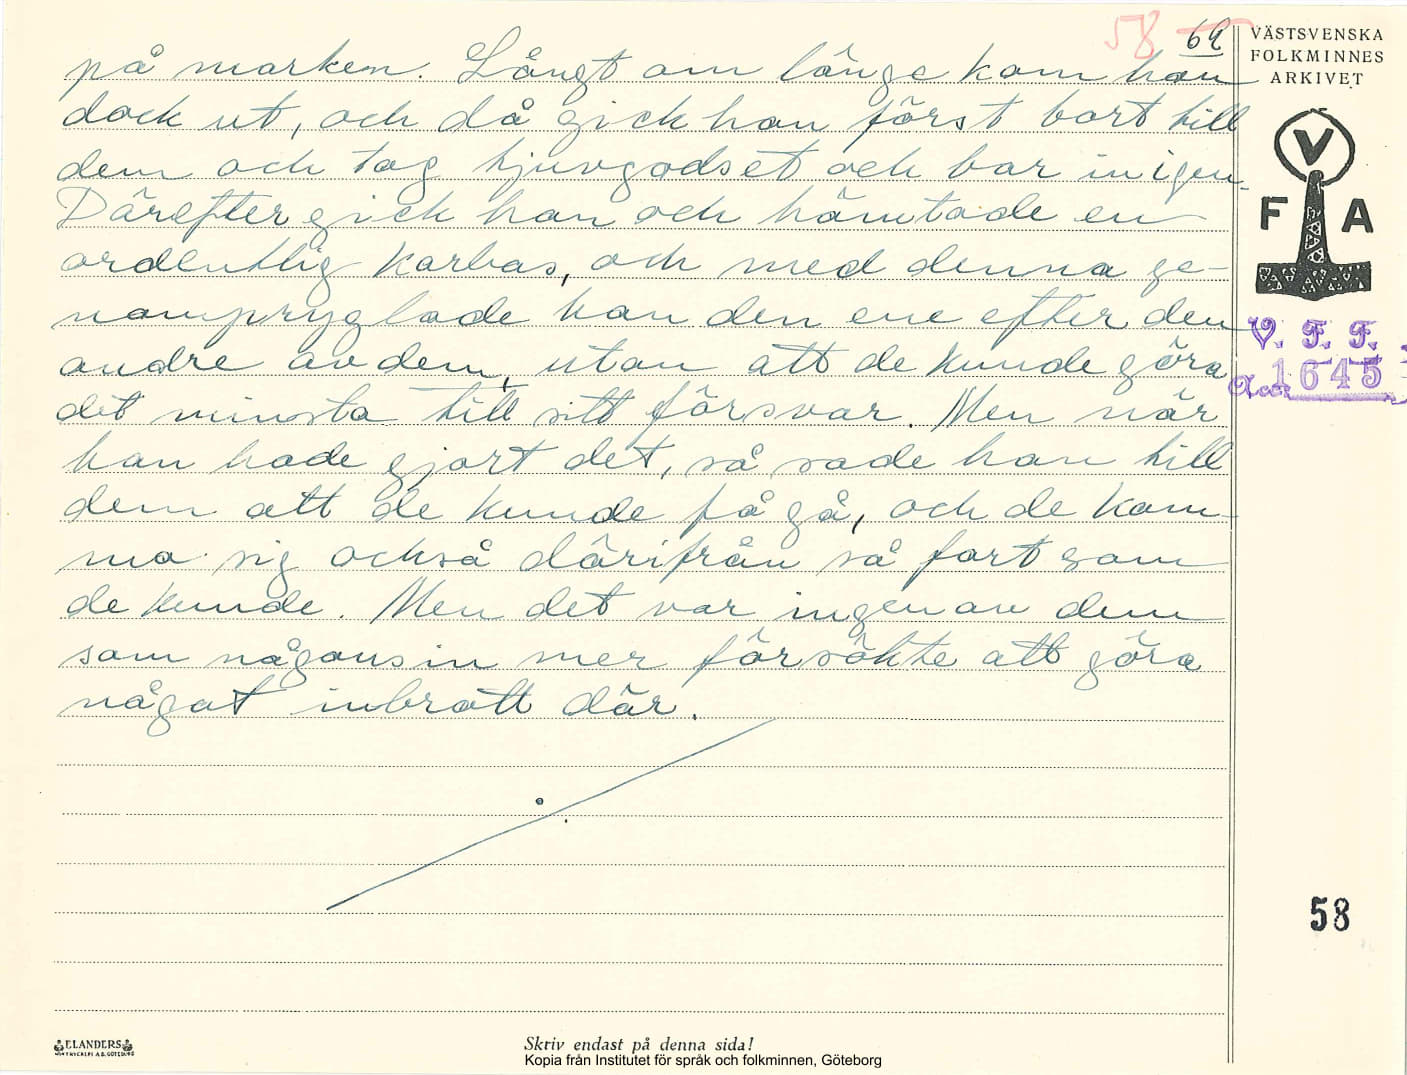 58 69
på marken. Långt om länge kom han
dock ut, och då gick han först bort till
dem och tog tjuvgodset och bar in igen.
Därefter gick han och hämtade en
ordentlig karbas, och med denna ge-
nompryglade han den ene efter den
andre av dem, utan att de kunde göra
det minsta till sitt försvar. Men när
han hade gjort det, så sade han till
dem att de kunde få gå, och de kom-
mo sig också därifrån så fort som
de kunde. Men det var ingen av dem
som någonsin mer försökte att göra
något inbrott där.
VÄSTSVENSKA
FOLKMINNES
ARKIVET
V
F A
V. F. F.
Acc. 1645
58
ELANDERS
Skriv endast på denna sida!
Kopia från Institutet för språk och folkminnen, Göteborg